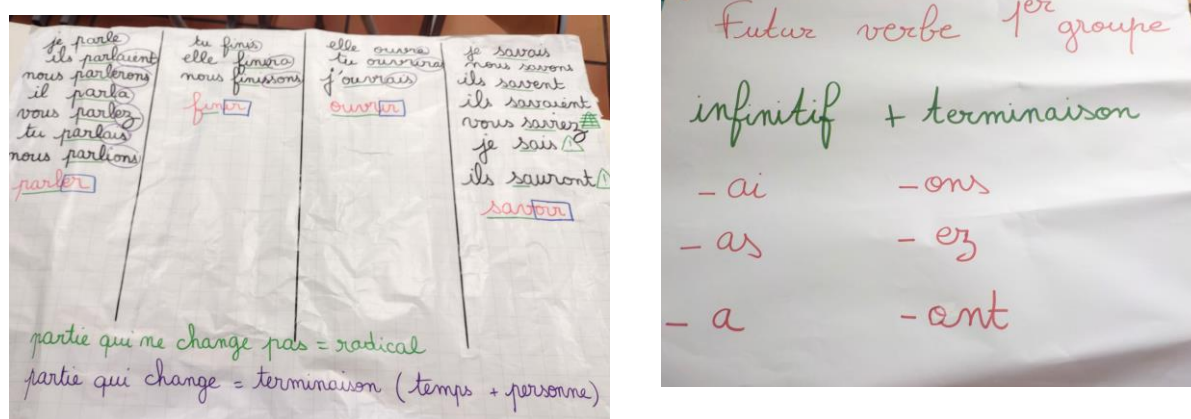 je parle
ils parlaient
nous parlerons
il parla
vous parlez
tu parlais
nous parlions
parler
tu finis
elle finira
nous finissons
finir
elle ouvre
tu ouvriras
j'ouvrais
ouvrir
je savais
nous savons
ils savent
ils savaient
vous saviez
je sais
ils sauront
savoir
partie qui ne change pas = radical
partie qui change = terminaison (temps + personne)
Futur verbe 1er groupe
infinitif + terminaison
- ai - ons
- as - ez
- a - ont